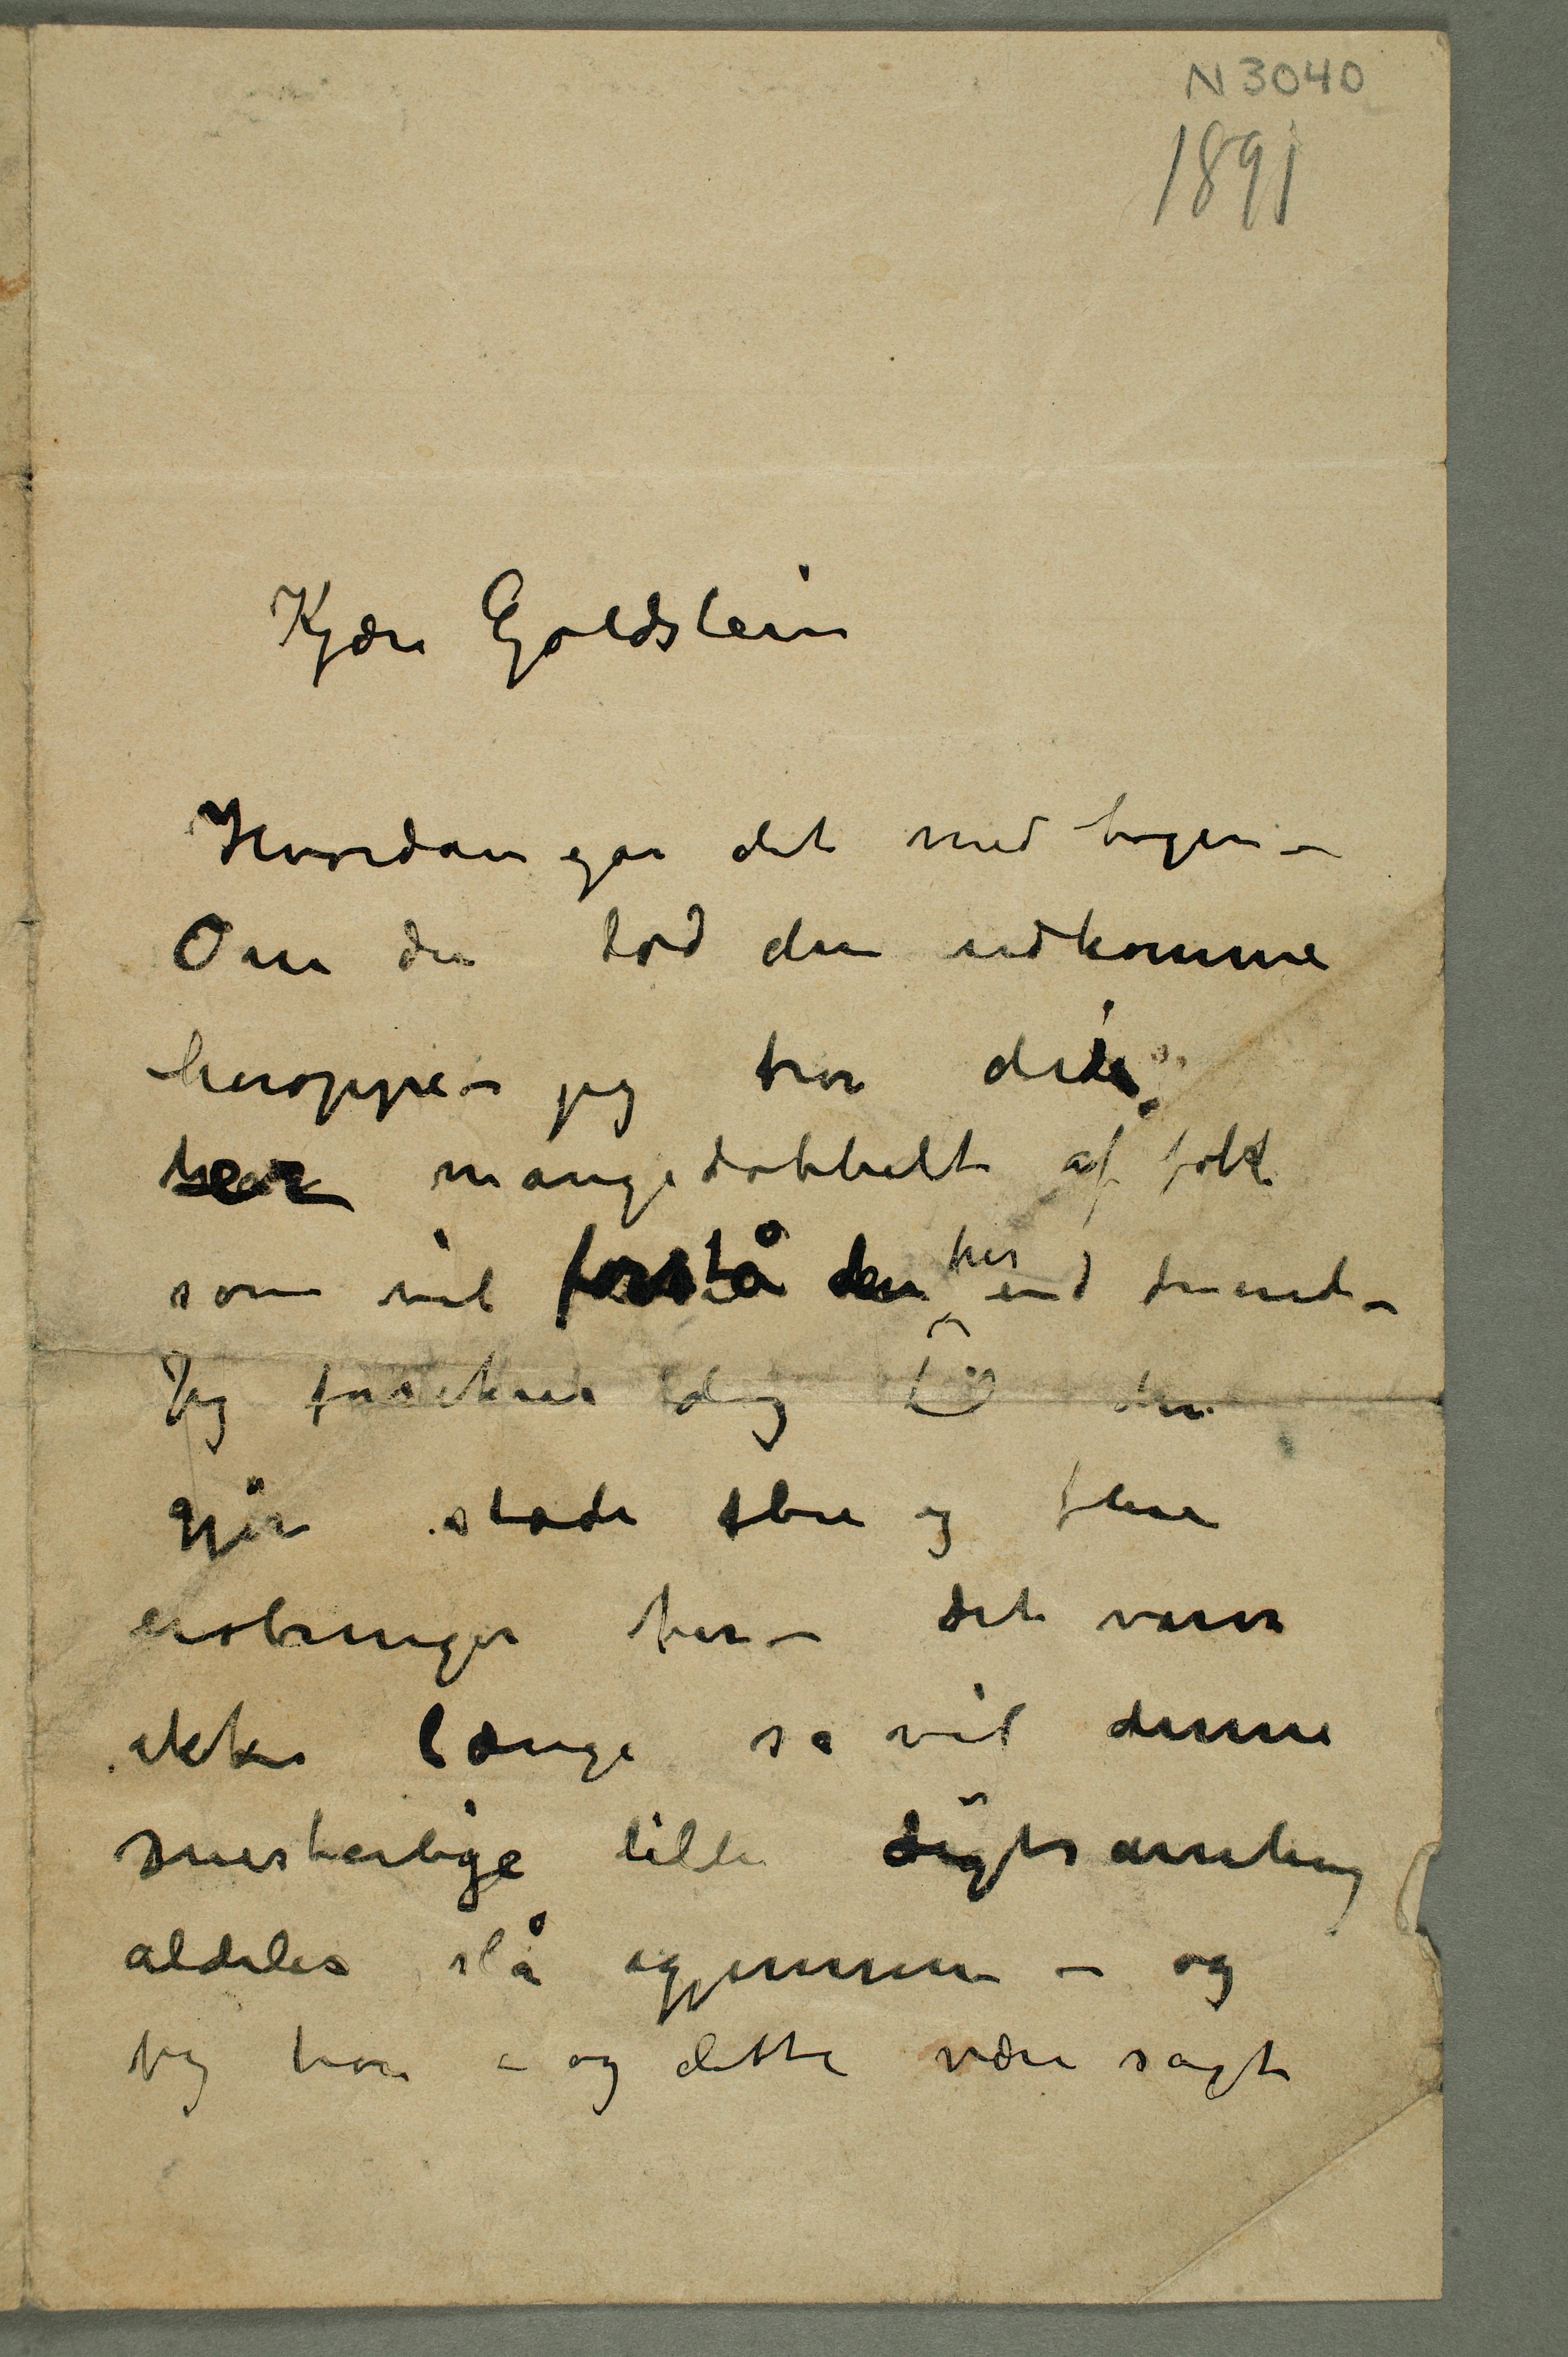 N 3040
1891
Kjære Goldstein
Hvordan går det med bogen –
Om du lod den udkomme
heroppe – jeg tror det er
her mangedobbelt af folk
som vil forstå den her end dernede –
Jeg forsikrer dig den
gjør stadi flere og flere
erobringer her – det varer
ikke længe så vil denne
mesterlige lille digtsamling
aldeles slå igjennem – og
jeg tror – og dette være sagt